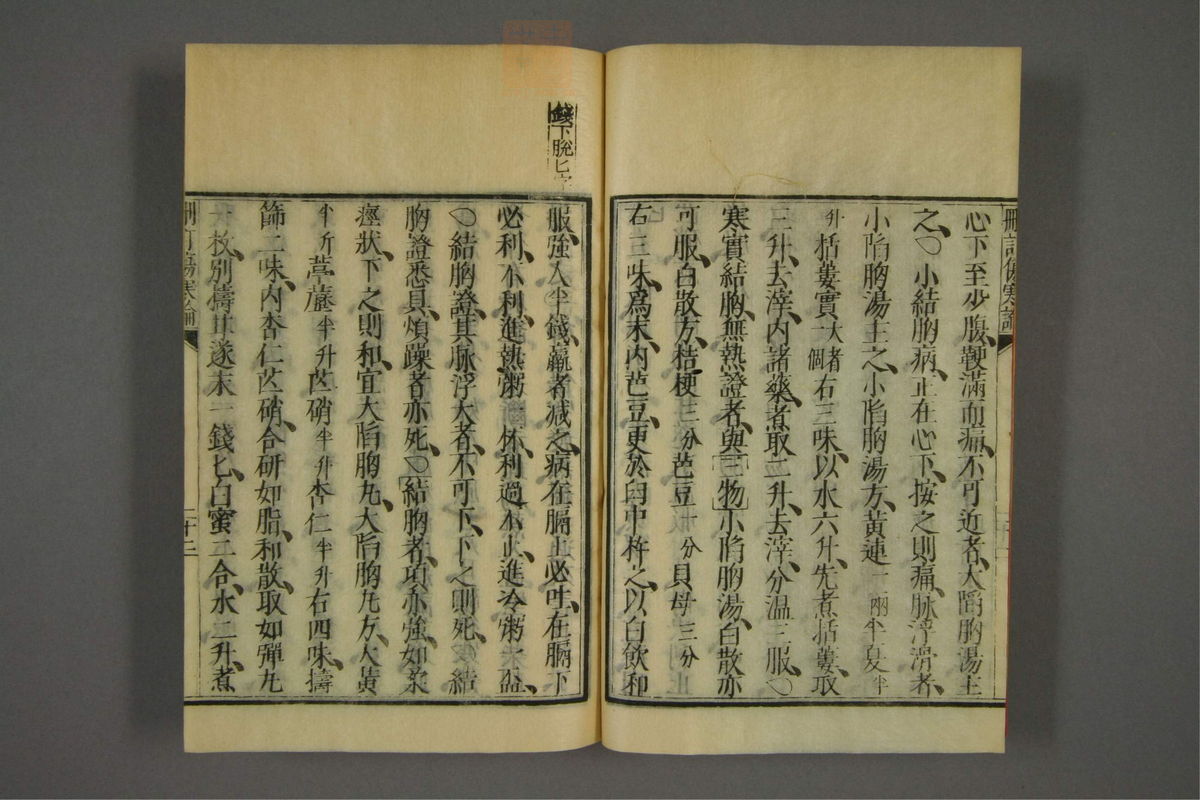 刪訂傷寒論
心下至少腹鞕滿而痛不可近者大陷胸湯主
之〇小結胸病正在心下按之則痛脉浮滑者
小陷胸湯主之小陷胸湯方黃連一兩半夏半
升括蔞實大者一個右三味以水六升先煮括蔞取
三升去滓内諸藥煮取二升去滓分温三服〇
寒實結胸無熱證者與[三物]小陷胸湯白散亦
可服白散方桔梗三分芭豆十分貝母三分
右三味爲末内芭豆更於臼中杵之以白飲和
錢下脫匕字
服強人半錢羸者減之病在膈上必吐在膈下
必利不利進熱粥一杯利過不止進冷粥一杯
〇結胸證其脉浮大者不可下下之則死〇結
胸證悉具煩躁者亦死〇結胸者項亦強如柔
痙狀下之則和宜大陷胸丸大陷胸丸方大黃
半斤葶藶半升芒硝半升杏仁半升右四味擣
篩二味内杏仁芒硝合研如脂和散取如彈丸
一枚別擣甘遂末一錢匕白蜜二合水二升煮
刪訂傷寒論
二十三